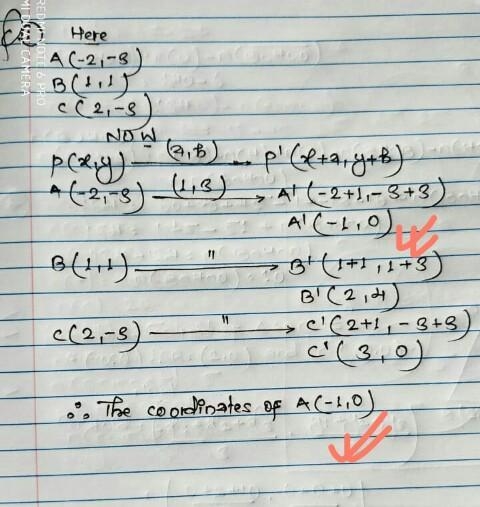 Here
A(-2,-3)
B(1,1)
C(2,-3)
NOW
P(x,y) (a,b) P'(x+a,y+b)
A(-2,-3) (1,3) A'(-2+1,-3+3)
A'(-1,0)
B(1,1) " B'(1+1,1+3)
B'(2,4)
C(2,-3) " C'(2+1,-3+3)
C'(3,0)
∴ The coordinates of A(-1,0)
REDMI NOTE 6 PRO
MI DUAL CAMERA